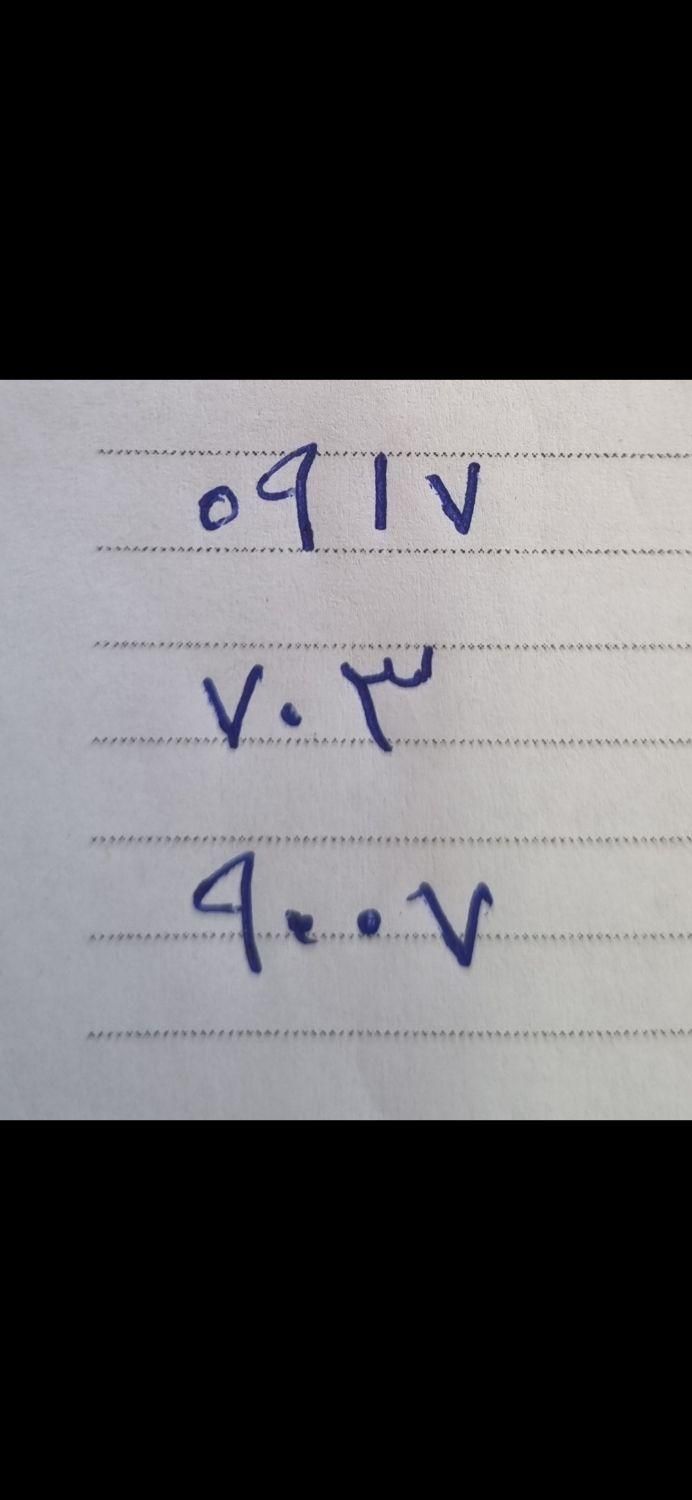 ۰۹۱۷
۷۰۳
۹۰۰۷